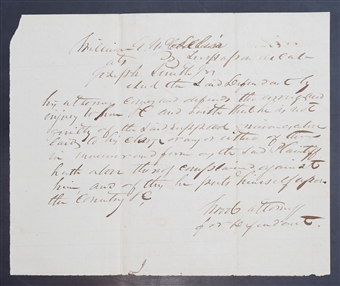 William
Joseph Smith Jr
And the Said Defendant by
his attorney comes and defends the wrong and
injury &c and saith that he is not
guilty of the Said Supposed
laid to his charge or any or either of them
in manner and form as the Said Plaintiff
hath above thereof complained against
him and of this he puts himself upon
the Country &c
attorney
for defendant.